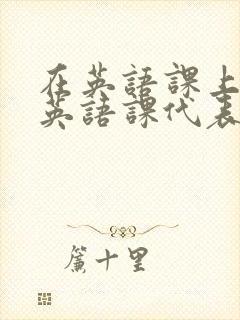 在英語課上
英語課代表
簾十里